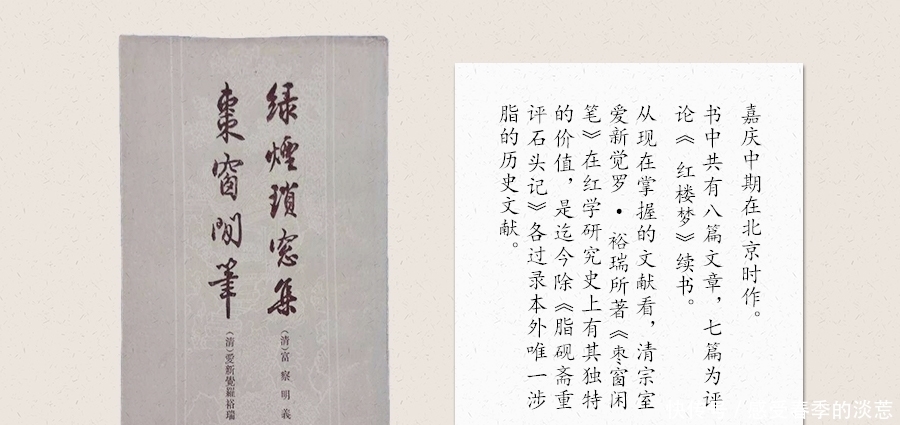 绿煙瑣窓集
（清）富察明義
棗窗閒筆
（清）愛新覺羅裕瑞
嘉庆中期在北京时作。
书中共有八篇文章，七篇为评
论《红楼梦》续书。
从现在掌握的文献看，清宗室
爱新觉罗•裕瑞所著《枣窗闲
笔》在红学研究史上有其独特
的价值，是迄今除《脂砚斋重
评石头记》各过录本外唯一涉
脂的历史文献。
季的淡惹